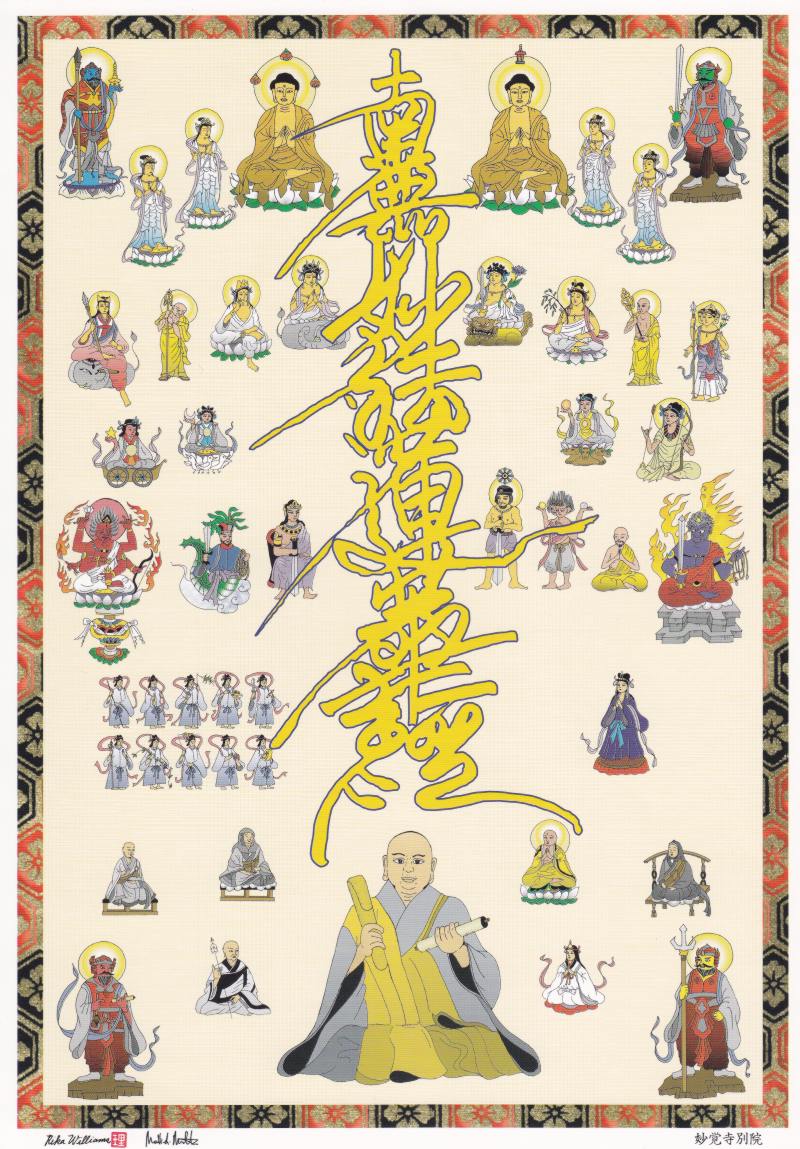 南無妙法蓮華經
Rika Williams 理
妙覚寺別院